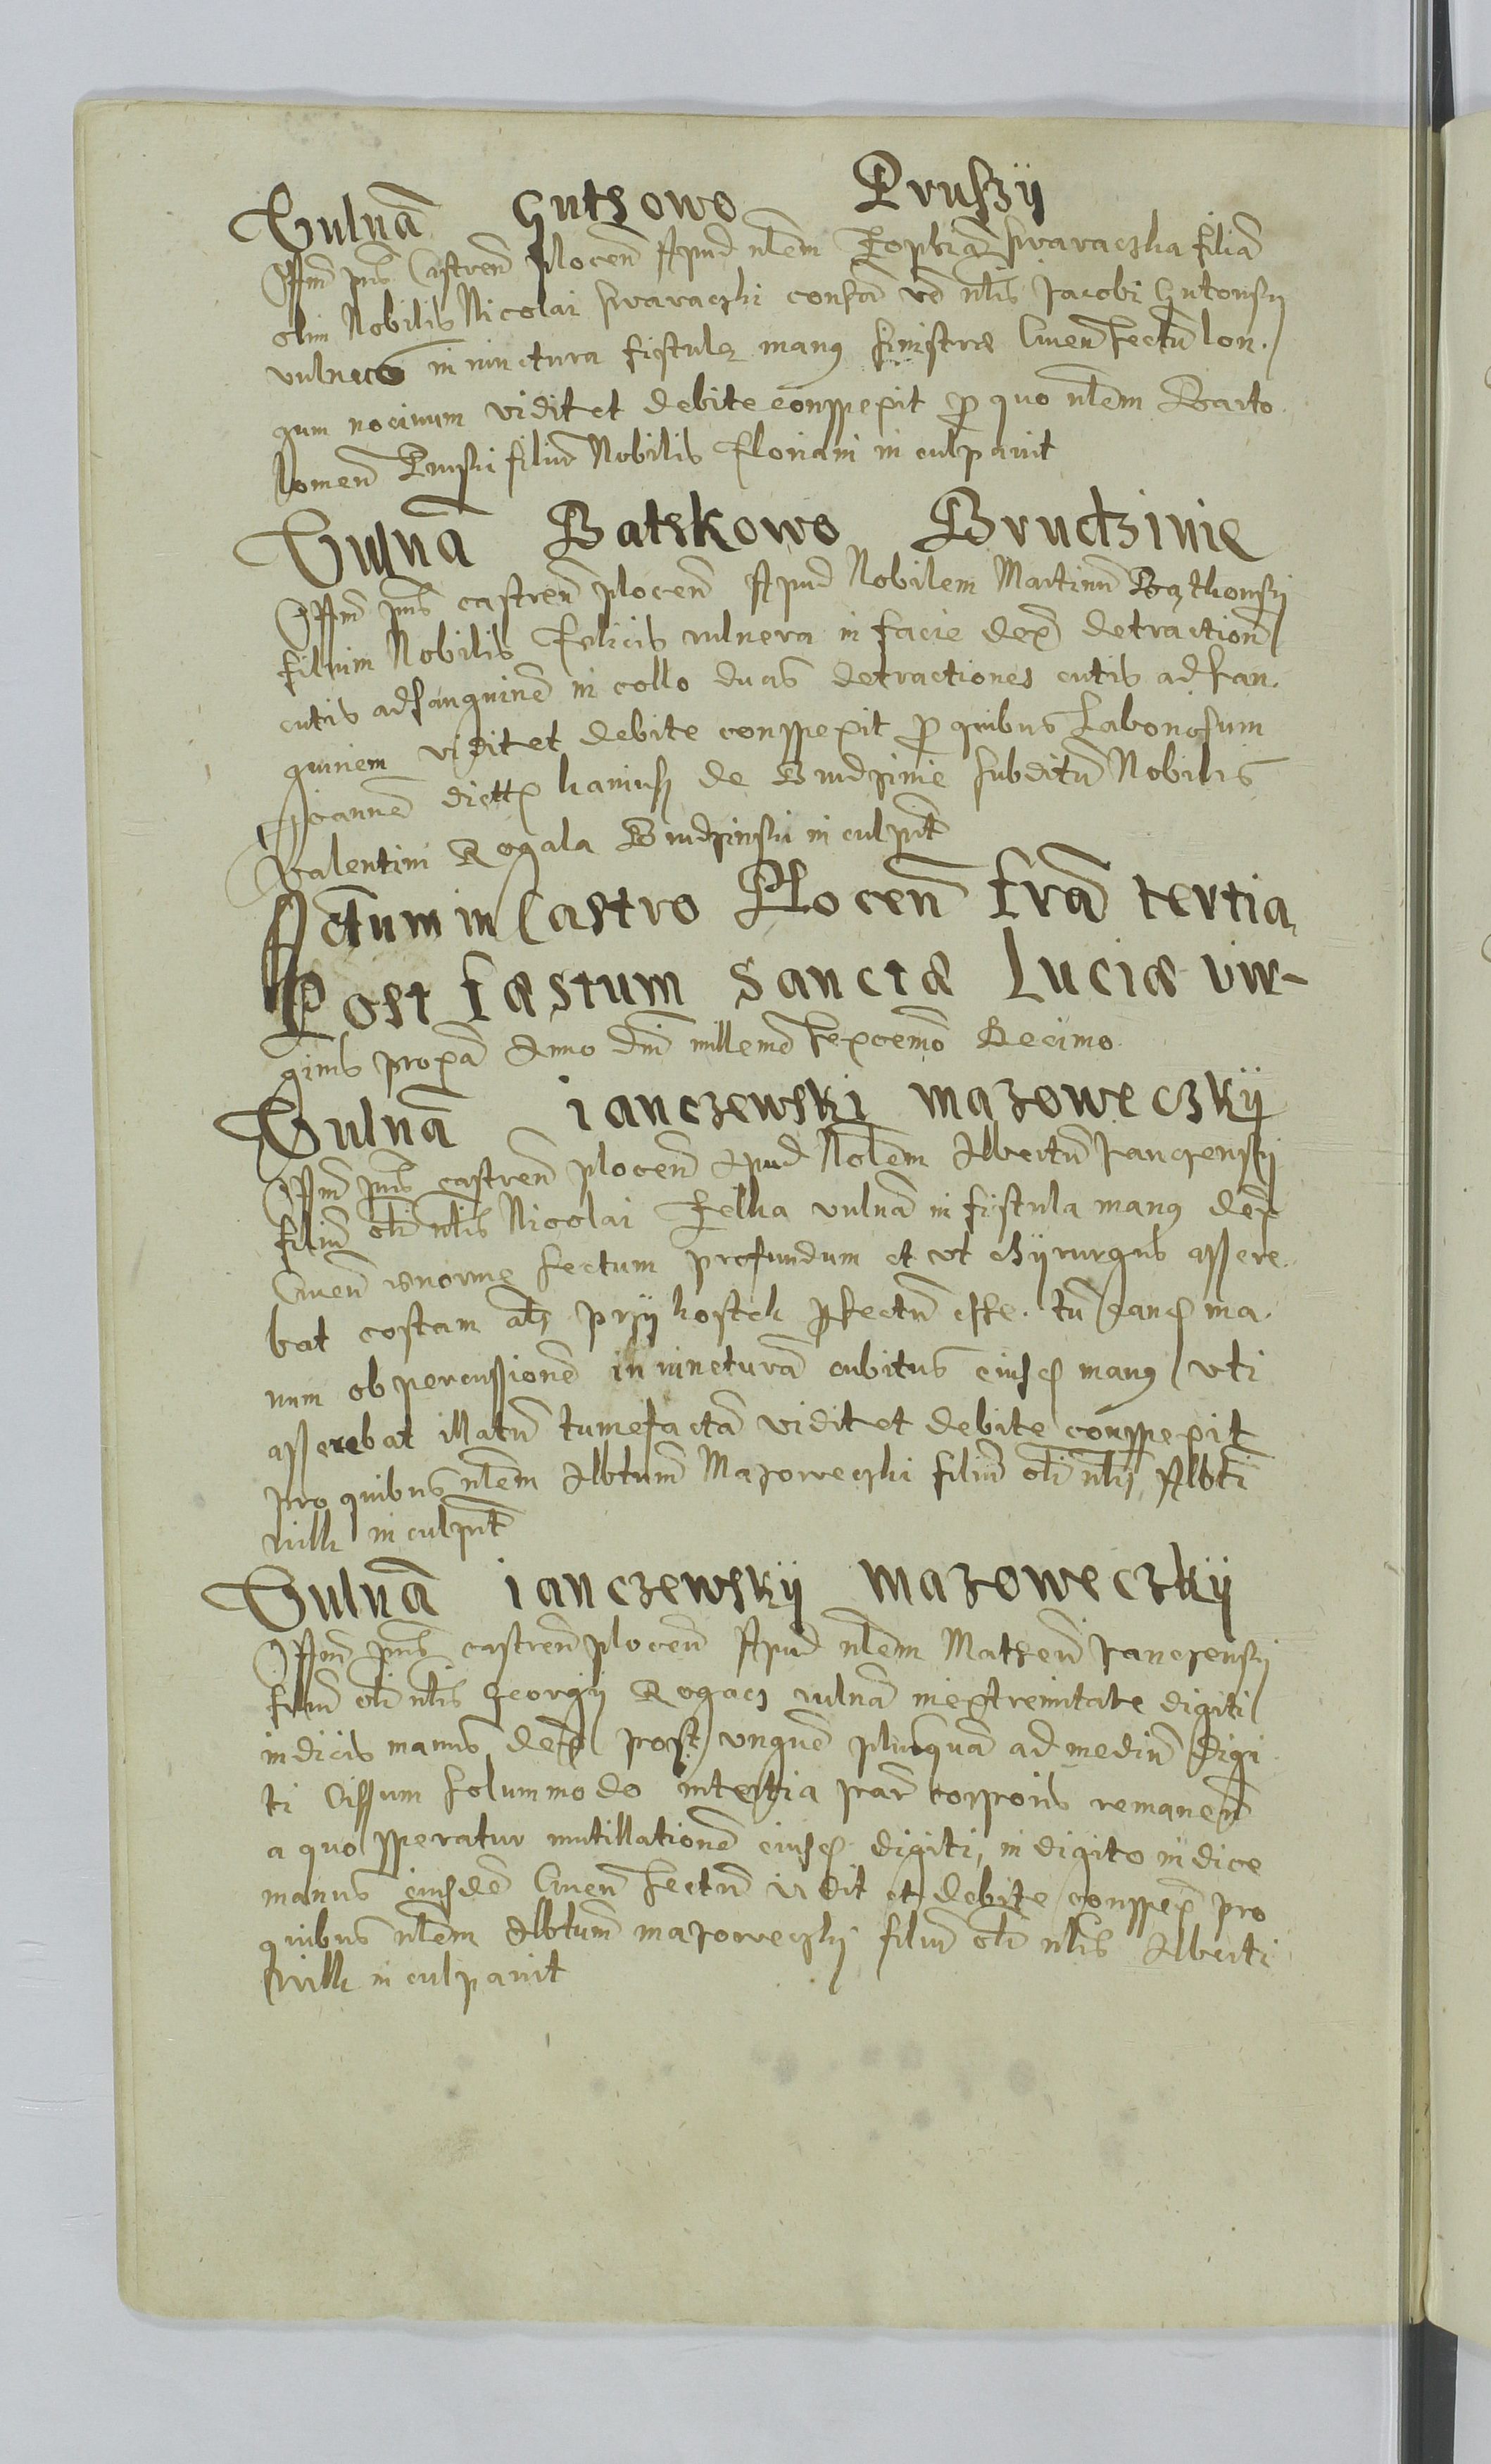 Vulnā Gutkowo Pruskÿ
Offm pns Castren̄ plocen̄ Apud nlem Zophią Swaraczka filiā
olim Nobilis Nicolai Swaraczki consā vō nlis Jacobi Gutowskÿ
vulnus in iunctura fistulę manꝯ sinistræ Cruen̄ sectū lon.
gum nocivum vidit et debite conspexit ꝑ quo nlem Barto
lomeū Pruski filiū Nobilis Floriani inculpavit
Vulnā Batkkowo Brudzinie
Offm pns castren̄ plocen̄ Apud Nobilem Martinū Bąthowskÿ
filium Nobilis Felicis vulnera in facie dex detractionē
cutis ad sanguinē in collo duas detractiones cutis ad san.
guinem vidit et debite conspexit ꝑ quibus Laboriosum
Joannē dictū haniusz de Brudzinie subditū Nobilis
Valentini Rogala Brudzinski inculpvt
Actum in Castro Plocen̄ frā tertia
Post fæstum Sanctæ Luciæ vir-
ginis proxā Anno Dni millemo sexcemo Decimo
Vulnā ianczewski mazoweczkÿ
Offm pns castren̄ plocen̄ Apud Nlem Albertū Janczewskÿ
filiū oli nlis Nicolai Zelka vulnā in fistula manꝯ dex
Cruen̄ enorme sectum profundum et vt chÿrurgus assere.
bat costam als przÿkostek ꝑsectū esse. tū eandē ma.
num ob percussionē in iuncturā cubitus eiusdē manꝯ vti
asserebat illatū tumefactā vidit et debite conspexit
pro quibus nlem Albtum Mazoweczki filiū oli nlis Albti
Wilk inculpvt
Vulnā ianczewskÿ mazoweczkÿ
Offm pns castren̄ plocen̄ Apud nlem Matheū Janczewskÿ
filiū oli nlis Georgÿ Rogacz vulnā in extremitate digiti
indicis manus dex post unguē plusquā ad mediū digi
ti Cissum solummodo in tertia par corporis remanen̄
a quo speratur mutillationē eiusdē digiti, in digito indice
manus eiusdē Cruen̄ sectū vidit et debite conspex pro
quibus nlem Albtum mazoweczkÿ filiū oli nlis Alberti
Wilk inculpavit